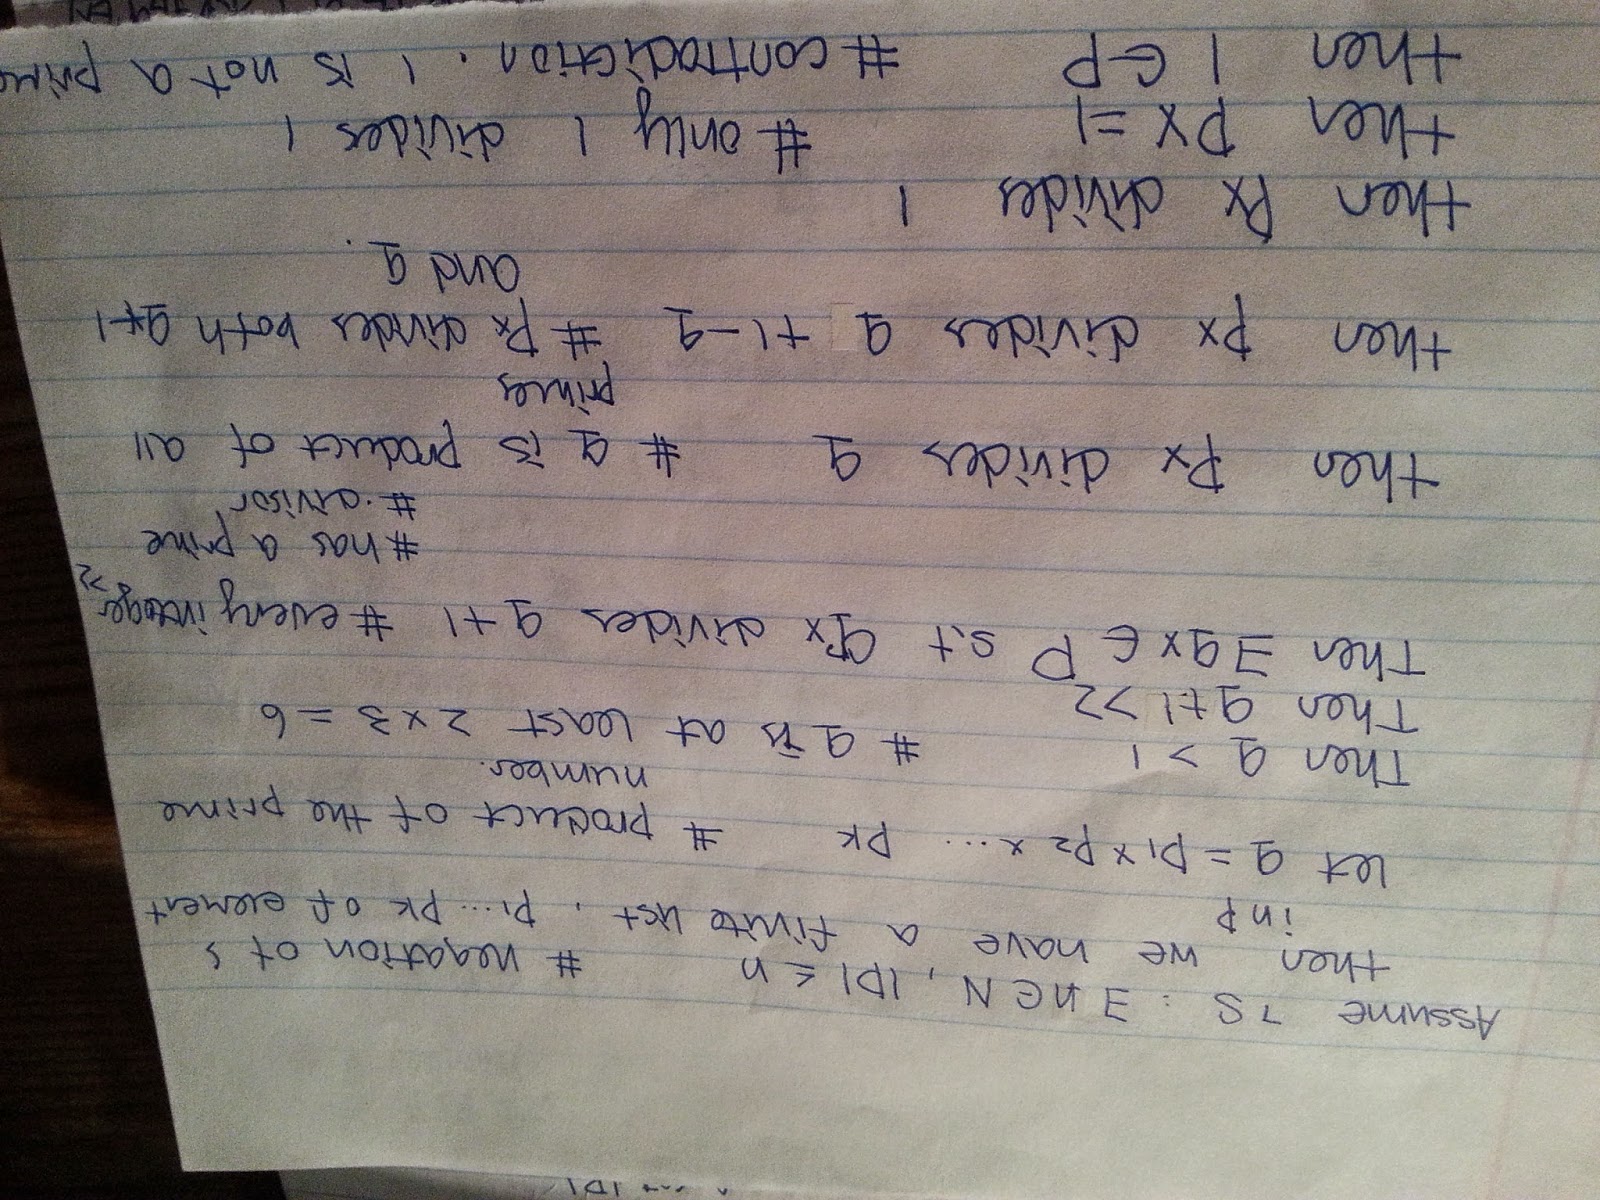 Assume ¬S : ∃ n∈N, |P| ≤ n # negation of s
then we have a finite list, p1.... pk of element
in P
let q = p1 x p2 x ... pk # product of the prime
number.
Then q > 1 # q is at least 2 x 3 = 6
Then q+1 >2
Then ∃ qx ∈ P s.t px divides q+1 # every integer >2
# has a prime
# divisor
then Px divides q # q is product of all
primes
then px divides q +1-q # Px divides both q+1
and q.
then Px divides 1
then px =1 # only 1 divides 1
then 1 ∈P # contradiction. 1 is not a prime